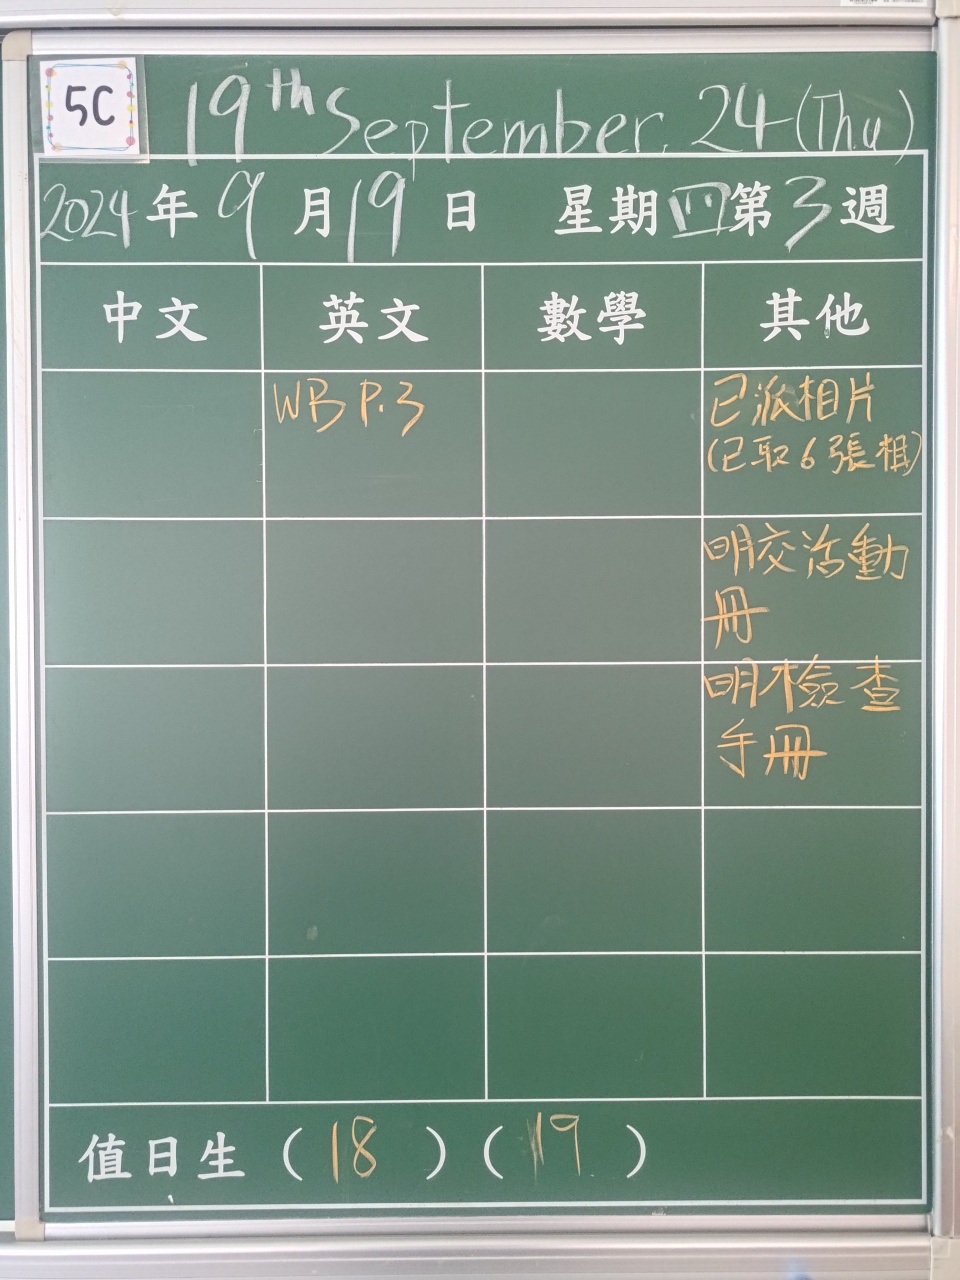 5C
19th September, 24 (Thu)
2024年9月19日 星期四第3週
中文 英文 數學 其他
WB P.3
已派相片
(已取6張相)
明交活動
冊
明檢查
手冊
值日生 (18) (19)